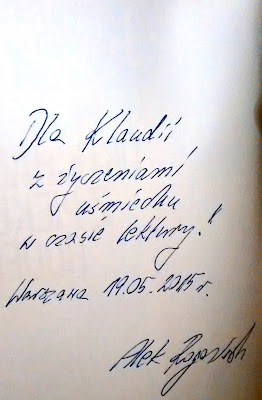 Dla Klaudii
z życzeniami
uśmiechu
w czasie lektury!"
Warszawa 19.05.2015 r.
Alek Rogoziński